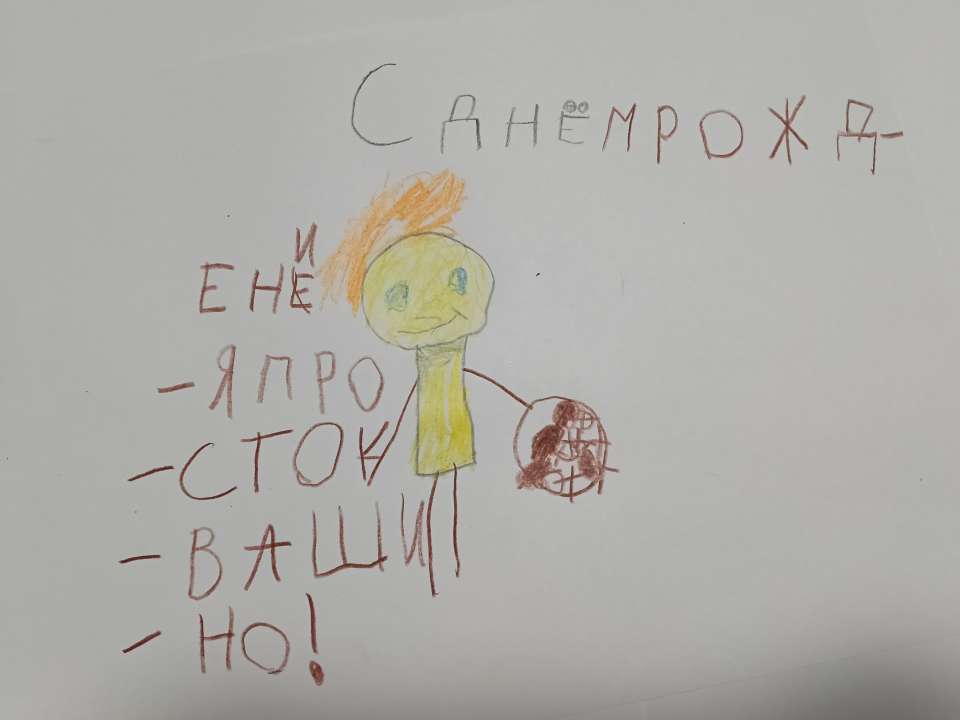 С ДНЁМ РОЖД-
ЕНИЕ
-ЯПРО
-СТОК
-ВАШИ
-НО!